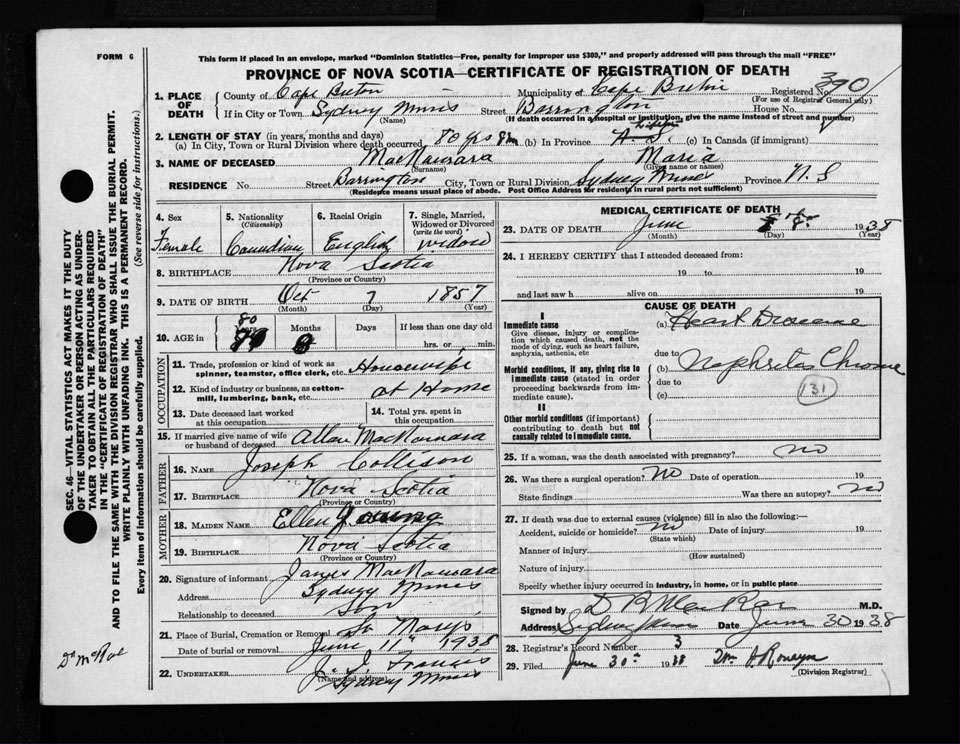 FORM 6
This form if placed in an envelope, marked "Dominion Statistics—Free, penalty for improper use $300," and properly addressed will pass through the mail "FREE"
PROVINCE OF NOVA SCOTIA—CERTIFICATE OF REGISTRATION OF DEATH
1. PLACE OF DEATH
County of Cape Breton Municipality of Cape Breton Registered No. 390/
(For use of Registrar General only)
If in City or Town Sydney Mines Street Barrington House No.
(Name) (If death occurred in a hospital or institution, give the name instead of street and number)
2. LENGTH OF STAY (in years, months and days)
(a) In City, Town or Rural Division where death occurred 80 yrs 8 m (b) In Province N. S. (c) In Canada (if immigrant)
3. NAME OF DECEASED MacNamara Maria
(Surname) (Given name or names)
RESIDENCE No. Street Barrington City, Town or Rural Division Sydney Mines Province N. S
(Residence means usual place of abode. Post Office Address for residents in rural parts not sufficient)
SEC. 46—VITAL STATISTICS ACT MAKES IT THE DUTY
OF THE UNDERTAKER OR PERSON ACTING AS UNDER-
TAKER TO OBTAIN ALL THE PARTICULARS REQUIRED
IN THE "CERTIFICATE OF REGISTRATION OF DEATH"
AND TO FILE THE SAME WITH THE DIVISION REGISTRAR WHO SHALL ISSUE THE BURIAL PERMIT.
WRITE PLAINLY WITH UNFADING INK. THIS IS A PERMANENT RECORD.
Every item of information should be carefully supplied. (See reverse side for instructions.)
4. Sex Female
5. Nationality (Citizenship) Canadian
6. Racial Origin English
7. Single, Married, Widowed or Divorced (write the word) widow
8. BIRTHPLACE Nova Scotia
(Province or Country)
9. DATE OF BIRTH Oct 7 1857
(Month) (Day) (Year)
10. AGE in 80 Years 8 Months Days If less than one day old hrs. or min.
OCCUPATION
11. Trade, profession or kind of work as spinner, teamster, office clerk, etc. Housewife
12. Kind of industry or business, as cotton-mill, lumbering, bank, etc. at Home
13. Date deceased last worked at this occupation
14. Total yrs. spent in this occupation
15. If married give name of wife or husband of deceased Allan MacNamara
FATHER
16. NAME Joseph Collison
17. BIRTHPLACE Nova Scotia
(Province or Country)
MOTHER
18. MAIDEN NAME Ellen Young
19. BIRTHPLACE Nova Scotia
(Province or Country)
20. Signature of informant James MacNamara
Address Sydney Mines
Relationship to deceased Son
21. Place of Burial, Cremation or Removal
Date of burial or removal June 11" 1938
22. UNDERTAKER J. J. Francis
(Name and address) Sydney Mines
Dr McRae
MEDICAL CERTIFICATE OF DEATH
23. DATE OF DEATH June 8th 1938
(Month) (Day) (Year)
24. I HEREBY CERTIFY that I attended deceased from:
19 to 19
and last saw h alive on 19
CAUSE OF DEATH
I
Immediate cause (a) Heart Disease
Give disease, injury or complication which caused death, not the mode of dying, such as heart failure, asphyxia, asthenia, etc
due to
Morbid conditions, if any, giving rise to immediate cause (stated in order proceeding backwards from immediate cause). (b) Nephritis Chronic
due to
(c) 131
II
Other morbid conditions (if important) contributing to death but not causally related to immediate cause.
25. If a woman, was the death associated with pregnancy? no
26. Was there a surgical operation? no Date of operation 19
State findings Was there an autopsy? no
27. If death was due to external causes (violence) fill in also the following:—
Accident, suicide or homicide? no Date of injury 19
(State which)
Manner of injury
(How sustained)
Nature of injury
Specify whether injury occurred in industry, in home, or in public place
Signed by M.D.
Address Sydney Mines Date June 30 1938
28. Registrar's Record Number 3
29. Filed June 30th 1938
(Division Registrar)